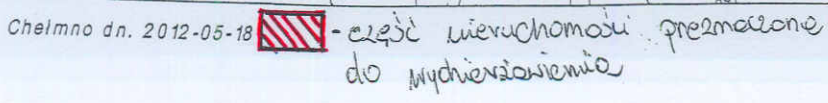 Chełmno dn. 2012-05-18 - część nieruchomości przeznaczona
do wydzierżawienia